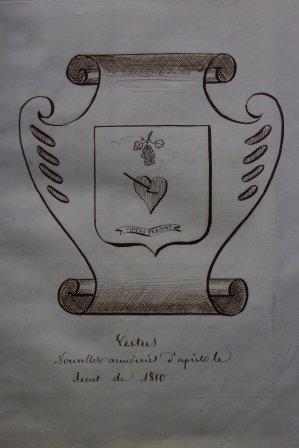 VIRTUS
Vertus
Nouvelles armoiries d'après le
decret de 1810.